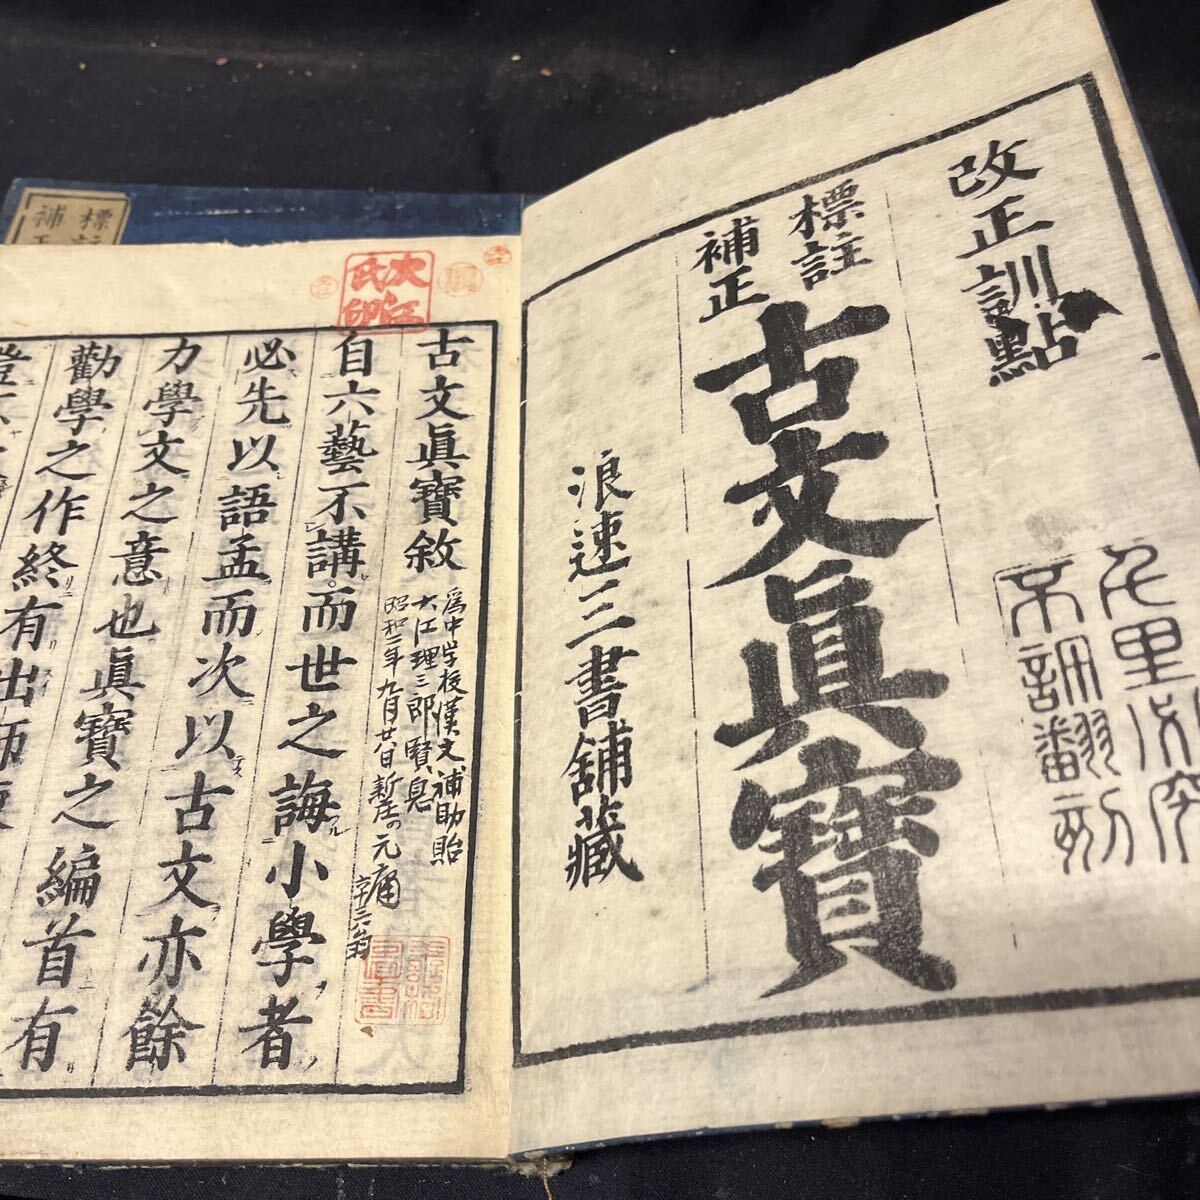 改正訓點
標註
補正
古文眞寶
浪速三書舖藏
千里必究
不許翻刻
標註
補正
大江氏印
古文眞寶敘
爲中学校漢文補助貽
大江理三郎賢息
昭和二年九月廿日
自六藝不講而世之誨小學者
必先以語孟而次以古文亦餘
力學文之意也眞寶之編首有
勸學之作終有出師